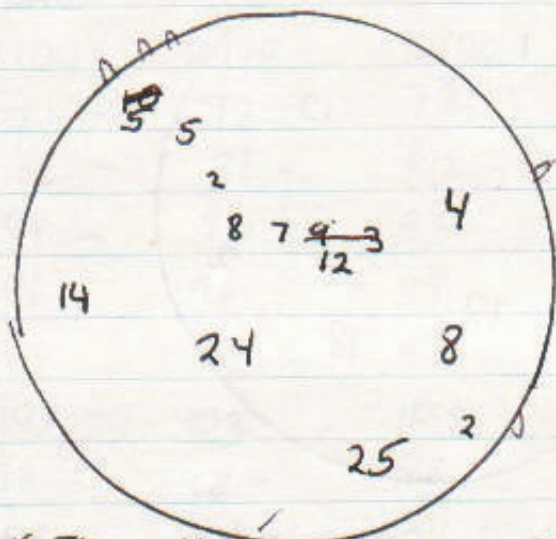 5 5
2
4
8 7 9 3
12
14
24 8
2
25